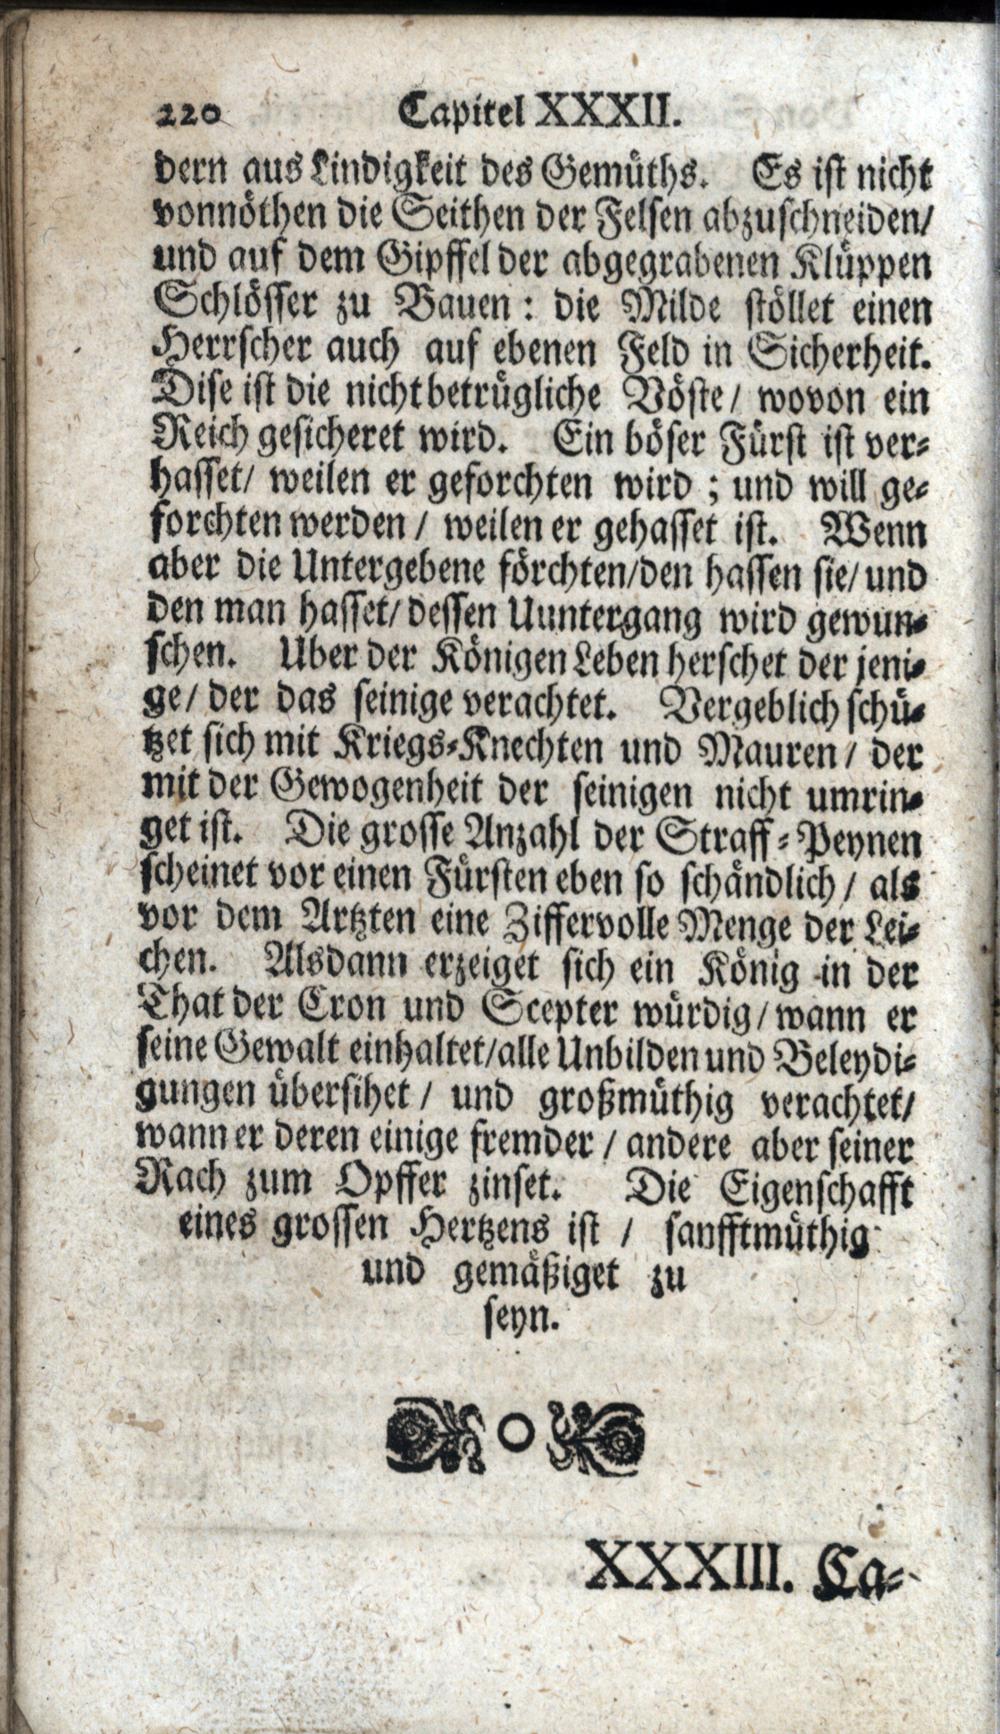 220 Capitel XXXII.
dern aus Lindigkeit des Gemüths. Es ist nicht
vonnöthen die Seithen der Felsen abzuschneiden/
und auf dem Gipffel der abgegrabenen Klüppen
Schlösser zu Bauen: die Milde stöllet einen
Herrscher auch auf ebenen Feld in Sicherheit.
Dise ist die nicht betrügliche Vöste/ wovon ein
Reich gesicheret wird. Ein böser Fürst ist ver-
hasset/ weilen er geforchten wird; und will ge-
forchten werden/ weilen er gehasset ist. Wenn
aber die Untergebene förchten/den hassen sie/ und
den man hasset/ dessen Uuntergang wird gewun-
schen. Uber der Königen Leben herschet der jeni-
ge/ der das seinige verachtet. Vergeblich schü-
tzet sich mit Kriegs-Knechten und Mauren/ der
mit der Gewogenheit der seinigen nicht umrin-
get ist. Die grosse Anzahl der Straff-Peynen
scheinet vor einen Fürsten eben so schändlich/ als
vor dem Artzten eine Ziffervolle Menge der Lei-
chen. Alsdann erzeiget sich ein König in der
That der Cron und Scepter würdig/ wann er
seine Gewalt einhaltet/alle Unbilden und Beleydi-
gungen übersihet/ und großmüthig verachtet/
wann er deren einige fremder/ andere aber seiner
Rach zum Opffer zinset. Die Eigenschafft
eines grossen Hertzens ist/ sanfftmüthig
und gemäßiget zu
seyn.
XXXIII. Ca-